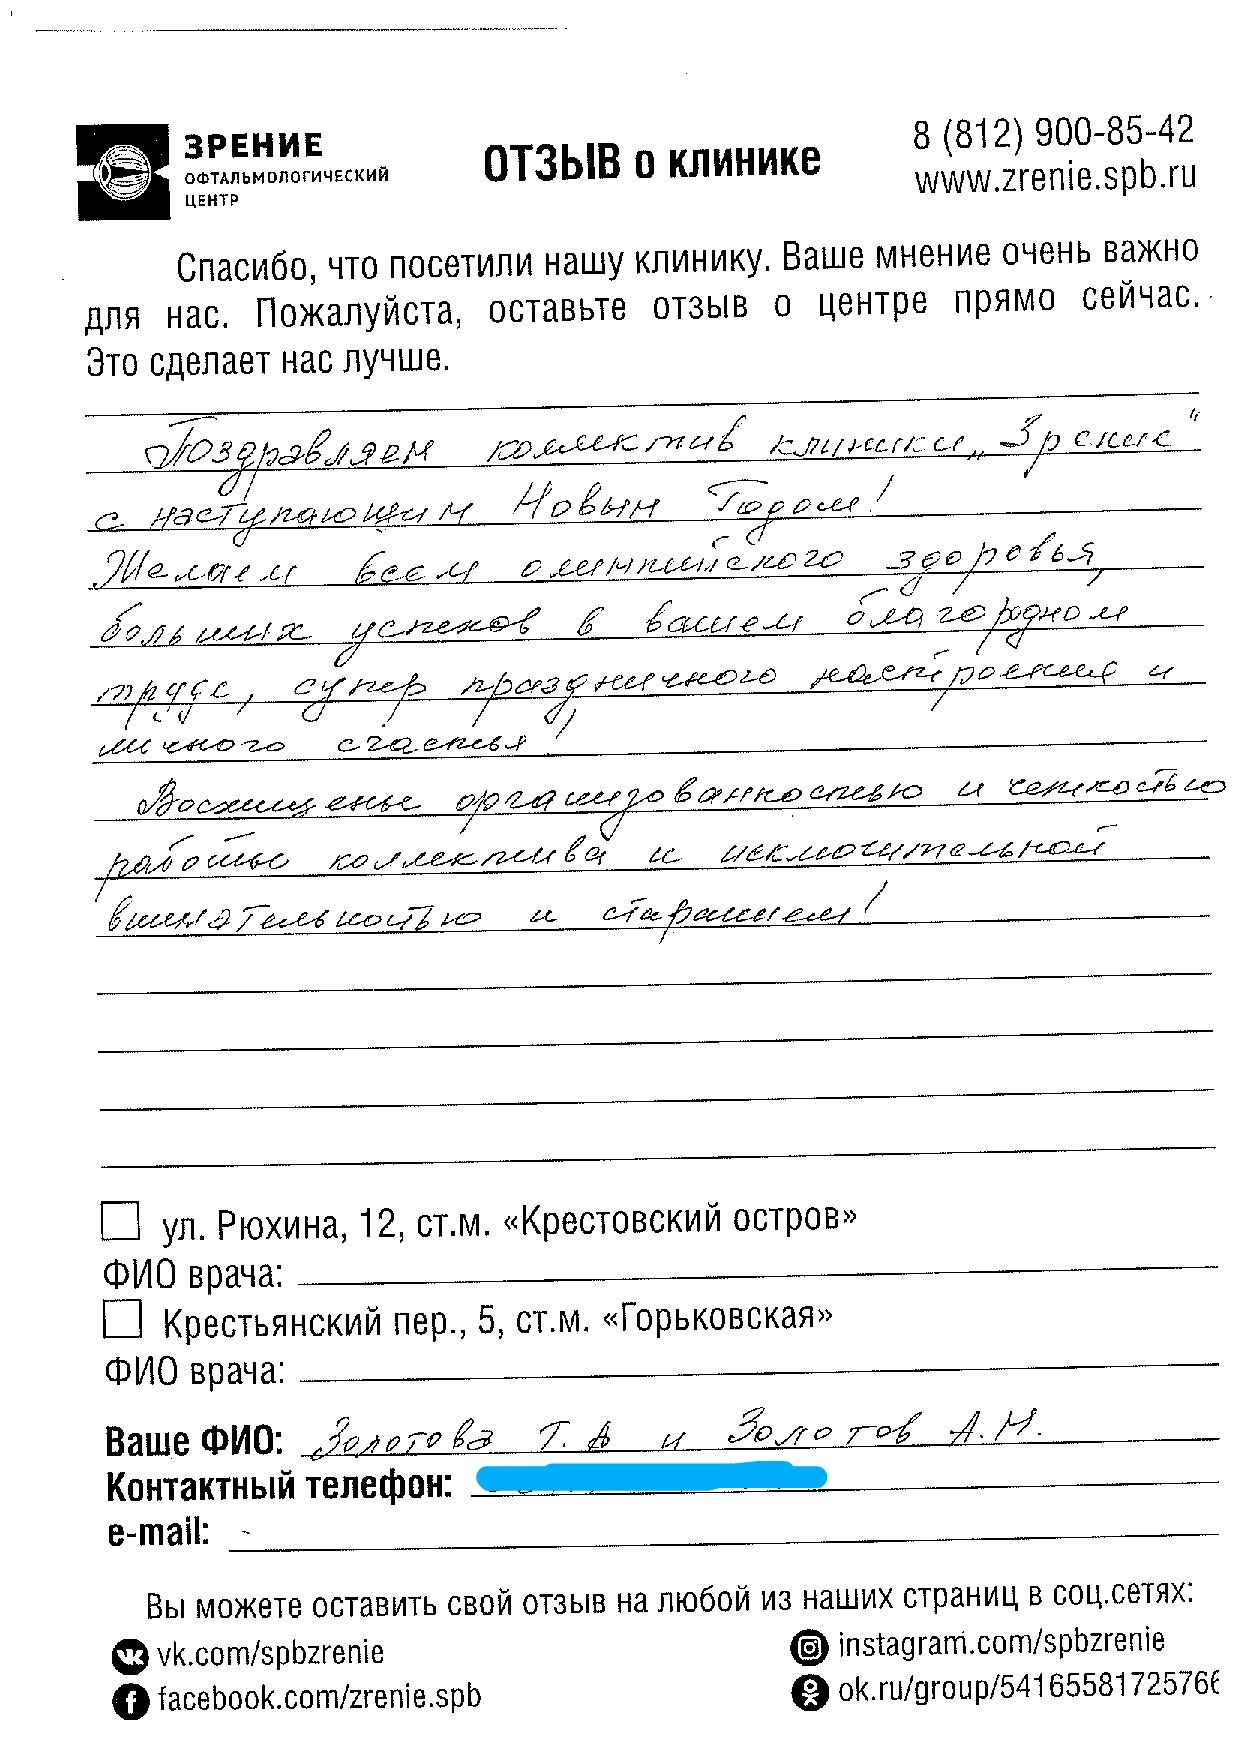 ЗРЕНИЕ
ОФТАЛЬМОЛОГИЧЕСКИЙ
ЦЕНТР
ОТЗЫВ о клинике
8 (812) 900-85-42
www.zrenie.spb.ru
Спасибо, что посетили нашу клинику. Ваше мнение очень важно
для нас. Пожалуйста, оставьте отзыв о центре прямо сейчас.
Это сделает нас лучше.
Поздравляем коллектив клиники „Зрение“
с наступающим Новым Годом!
Желаем всем олимпийского здоровья,
больших успехов в вашем благородном
труде, супер праздничного настроения и
личного счастья!
Восхищены организованностью и четкостью
работы коллектива и исключительной
внимательностью и старанием!
ул. Рюхина, 12, ст.м. «Крестовский остров»
ФИО врача:
Крестьянский пер., 5, ст.м. «Горьковская»
ФИО врача:
Ваше ФИО: Золотова Т. А и Золотов А.Н.
Контактный телефон:
e-mail: -
Вы можете оставить свой отзыв на любой из наших страниц в соц.сетях:
vk.com/spbzrenie
instagram.com/spbzrenie
facebook.com/zrenie.spb
ok.ru/group/54165581725766